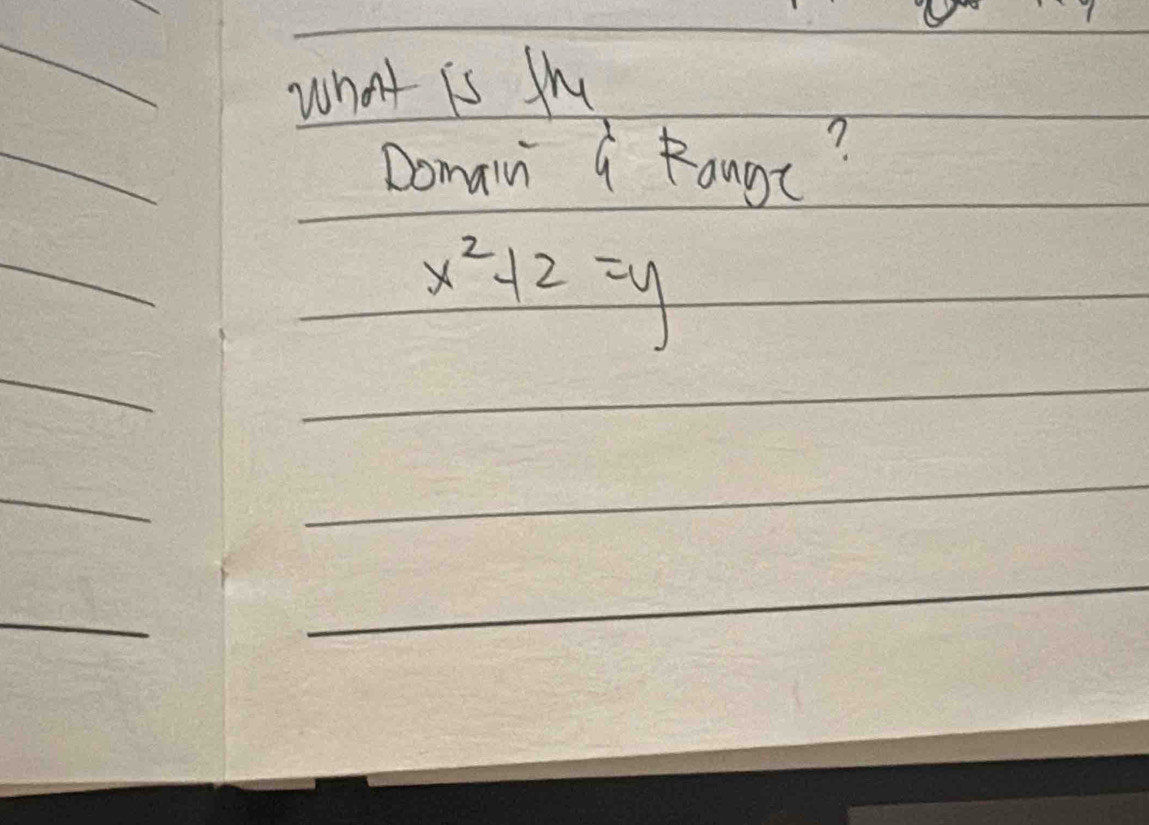 What is the
Domain & Range?
x²+2 =y